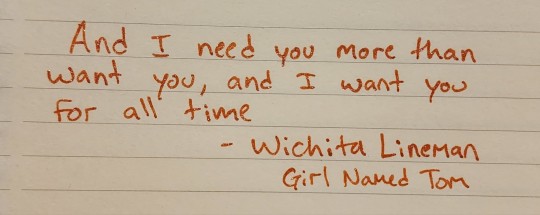 And I need you more than
want you, and I want you
for all time
- Wichita Lineman
Girl Named Tom